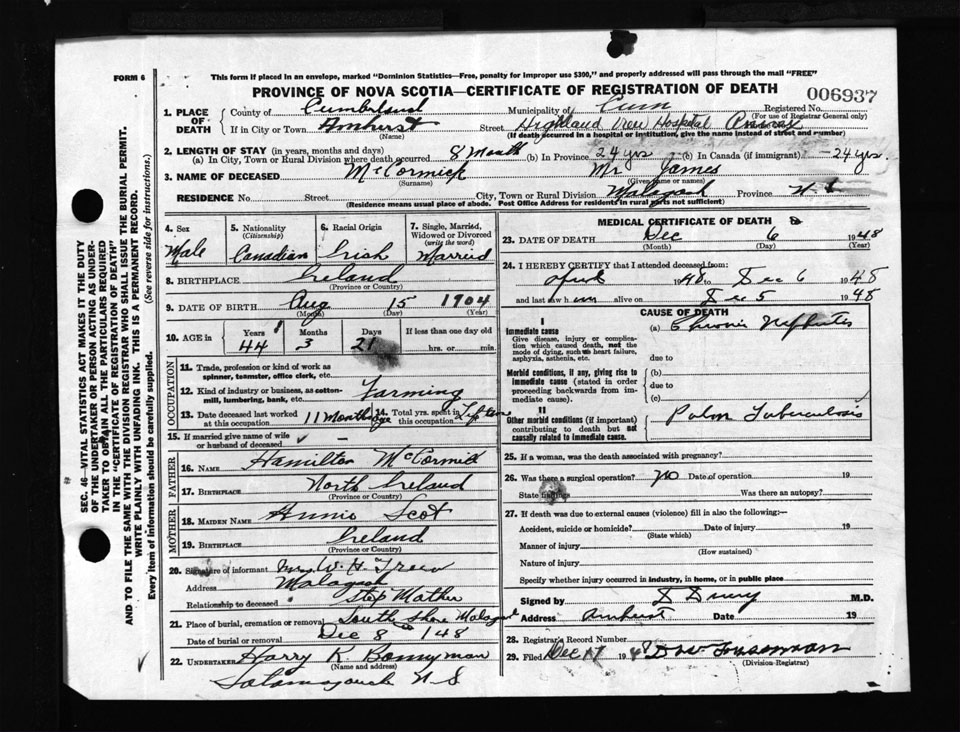 FORM 6
This form if placed in an envelope, marked "Dominion Statistics—Free, penalty for improper use $300," and properly addressed will pass through the mail "FREE"
PROVINCE OF NOVA SCOTIA—CERTIFICATE OF REGISTRATION OF DEATH
006937
1. PLACE OF DEATH County of Cumberland Municipality of Cum Registered No.
(For use of Registrar General only)
If in City or Town Amherst Street Highland View Hospital
(Name) (If death occurred in a hospital or institution, give the name instead of street and number)
2. LENGTH OF STAY (in years, months and days)
(a) In City, Town or Rural Division where death occurred 8 Month (b) In Province 24 yrs (b) In Canada (if immigrant) 24 yrs.
3. NAME OF DECEASED McCormick Mr James
(Surname) (Given name or names)
RESIDENCE No. Street City, Town or Rural Division Malagash Province N. S.
(Residence means usual place of abode. Post Office Address for residents in rural parts not sufficient)
4. Sex
Male
5. Nationality
(Citizenship)
Canadian
6. Racial Origin
Irish
7. Single, Married, Widowed or Divorced
(write the word)
Married
8. BIRTHPLACE Ireland
(Province or County)
9. DATE OF BIRTH Aug 15 1904
(Month) (Day) (Year)
10. AGE in Years Months Days If less than one day old
44 3 21 hrs. or min.
OCCUPATION
11. Trade, profession or kind of work as
spinner, teamster, office clerk, etc.
12. Kind of industry or business, as cotton-
mill, lumbering, bank, etc. Farming
13. Date deceased last worked
at this occupation 11 Months
14. Total yrs. spent in
this occupation Lifetime
15. If married give name of wife
or husband of deceased
FATHER
16. NAME Hamilton McCormick
17. BIRTHPLACE North Ireland
(Province or Country)
MOTHER
18. MAIDEN NAME Annie Scot
19. BIRTHPLACE Ireland
(Province or Country)
20. Signature of informant Mrs W. H.
Address Malagash
Relationship to deceased Step Mother
21. Place of burial, cremation or removal South Shore Malagash
Date of burial or removal Dec 8 /48
22. UNDERTAKER Harry K. Bonnyman
(Name and address)
Tatamagouche N S
MEDICAL CERTIFICATE OF DEATH
23. DATE OF DEATH Dec 6 1948
(Month) (Day) (Year)
24. I HEREBY CERTIFY that I attended deceased from:
April 1948 to Dec 6 1948
and last saw him alive on Dec 5 1948
CAUSE OF DEATH
I
Immediate cause
Give disease, injury or complica-
tion which caused death, not the
mode of dying, such as heart failure,
asphyxia, asthenia, etc.
(a) Chronic Nephritis
due to
Morbid conditions, if any, giving rise to
immediate cause (stated in order
proceeding backwards from im-
mediate cause).
(b)
due to
(c)
II
Other morbid conditions (if important)
contributing to death but not
causally related to immediate cause.
Pulm Tuberculosis
25. If a woman, was the death associated with pregnancy?
26. Was there a surgical operation? No Date of operation 19
State findings Was there an autopsy?
27. If death was due to external causes (violence) fill in also the following:—
Accident, suicide or homicide? Date of injury 19
(State which)
Manner of injury
(How sustained)
Nature of injury
Specify whether injury occurred in industry, in home, or in public place
Signed by M.D.
Address Amherst Date 19
28. Registrar's Record Number
29. Filed Dec 17 194
(Division Registrar)
SEC. 46—VITAL STATISTICS ACT MAKES IT THE DUTY
OF THE UNDERTAKER OR PERSON ACTING AS UNDER-
TAKER TO OBTAIN ALL THE PARTICULARS REQUIRED
IN THE "CERTIFICATE OF REGISTRATION OF DEATH"
AND TO FILE THE SAME WITH THE DIVISION REGISTRAR WHO SHALL ISSUE THE BURIAL PERMIT.
WRITE PLAINLY WITH UNFADING INK. THIS IS A PERMANENT RECORD.
Every item of information should be carefully supplied. (See reverse side for instructions.)